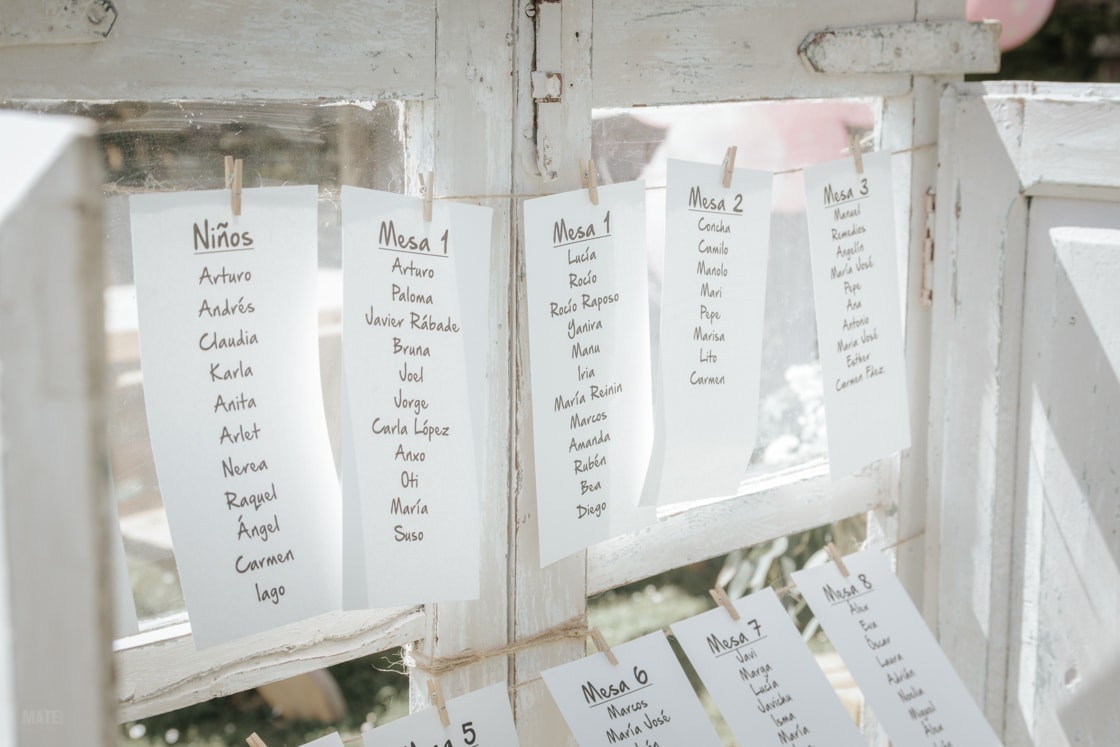 Niños
Arturo
Andrés
Claudia
Karla
Anita
Arlet
Nerea
Raquel
Ángel
Carmen
Iago
Mesa 1
Arturo
Paloma
Javier Rábade
Bruna
Joel
Jorge
Carla López
Anxo
Oti
María
Suso
Mesa 1
Lucía
Rocío
Rocío Raposo
Yanira
Manu
Iria
María Reinin
Marcos
Amanda
Rubén
Bea
Diego
Mesa 2
Concha
Camilo
Manolo
Mari
Pepe
Marisa
Lito
Carmen
Mesa 3
Manuel
Remedios
Angelín
María José
Pepe
Ana
Antonio
María José
Esther
Carmen Fdez.
Mesa 5
Mesa 6
Marcos
María José
Mesa 7
Javi
Marga
Lucía
Javichu
Isma
María
Mesa 8
Alex
Eva
Óscar
Laura
Adrián
Noelia
Miguel
Alex
MATEI